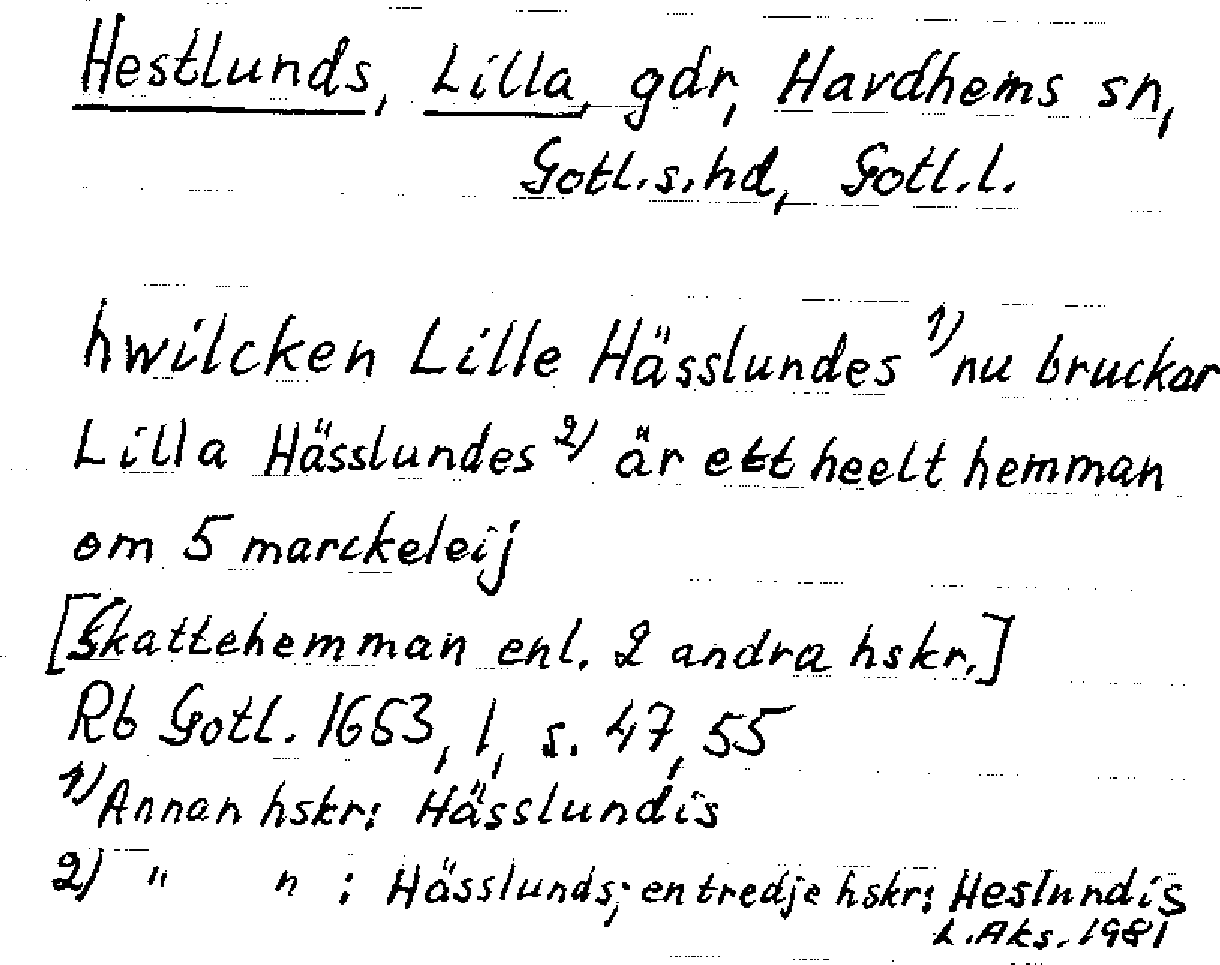 Hestlunds, Lilla, gdr, Havdhems sn,
Gotl.s.hd, Gotl.l.
hwilcken Lille Hässlundes 1) nu bruckar
Lilla Hässlundes 2) är ett heelt hemman
om 5 marckeleij
[Skattehemman enl. 2 andra hskr.]
Rb Gotl. 1653, 1, s. 47, 55
1) Annan hskr: Hässlundis
2) " " : Hässlunds; en tredje hskr: Heslundis
L. Aks. 1981